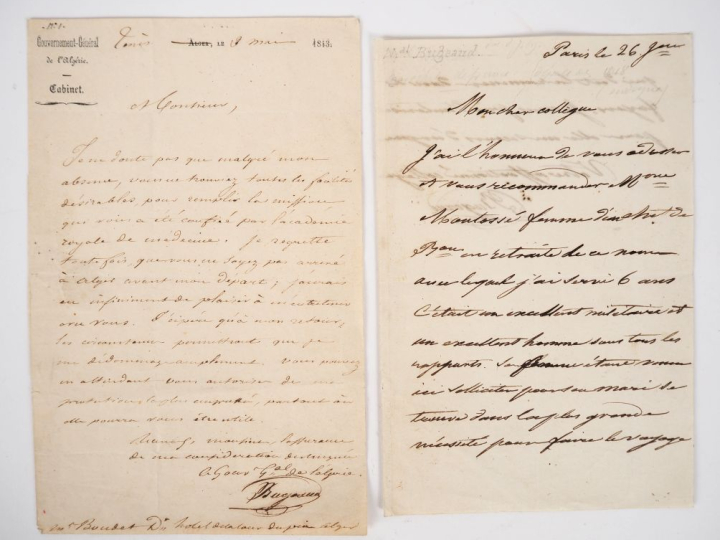 Gouvernement-Général
de l'Algérie.
Cabinet.
Alger, le 9 mai 1843.
Monsieur,
Je ne doute pas que malgré mon
absence, vous ne trouviez toutes les facilités
désirables, pour remplir la mission
qui vous a été confiée par l'académie
royale de médecine. Je regrette
toutefois que vous ne soyez pas arrivé
à Alger avant mon départ; j'aurais
eu infiniment de plaisir à m'entretenir
avec vous. J'espère qu'à mon retour,
les circonstances permettront que je
me dédommage amplement. Vous pouvez
en attendant vous autoriser de ma
protection la plus empressée, partout où
elle pourra vous être utile.
Recevez, monsieur, l'assurance
de ma considération distinguée
Le Gouvr Gal de l'algérie.
Bugeaud
Boudet Dr hotel de la tour du pin alger
Mal Bugeaud.
Paris le 26
Mon cher collegue
J'ai l'honneur de vous adresser
et vous recommander Mme
Montossé femme d'un chef de
Bon en retraite de ce nom
avec lequel j'ai servi 6 ans
C'était un excellent militaire et
un excellent homme sous tous les
rapports. Sa femme étant venue
ici solliciter pour son mari se
trouve dans la plus grande
nécessité pour faire le voyage